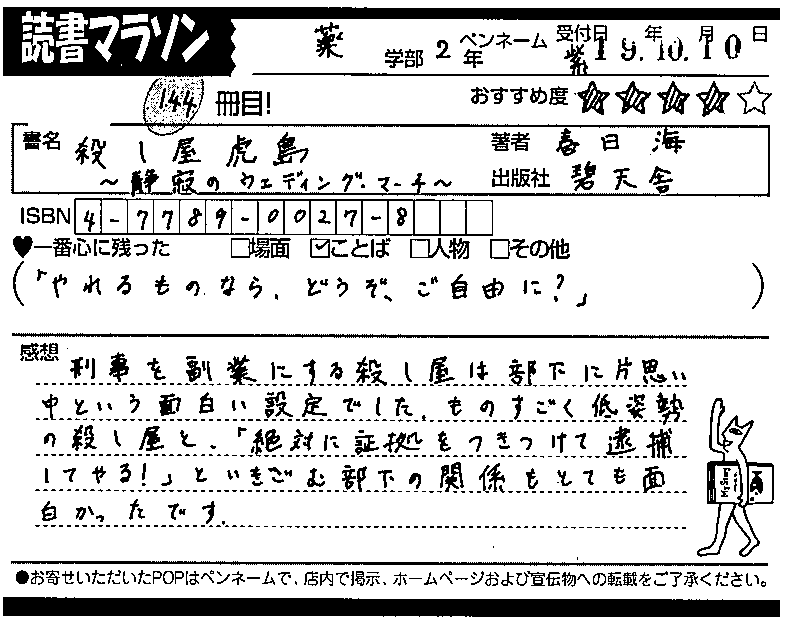 読書マラソン
薬 学部 2 年 ペンネーム 紫 受付日 19. 年 10. 月 10 日
144 冊目! おすすめ度 ★★★★☆
書名 殺し屋虎島 著者 春日 海
～静寂のウェディング・マーチ～ 出版社 碧天舎
ISBN 4-7789-0027-8
♥一番心に残った □場面 ☑ことば □人物 □その他
(「やれるものなら、どうぞ、ご自由に?」)
感想 刑事を副業にする殺し屋は部下に片思い
中という面白い設定でした。ものすごく低姿勢
の殺し屋と、「絶対に証拠をつきつけて逮捕
してやる!」といきごむ部下の関係もとても面
白かったです。
●お寄せいただいたPOPはペンネームで、店内で掲示、ホームページおよび宣伝物への転載をご了承ください。